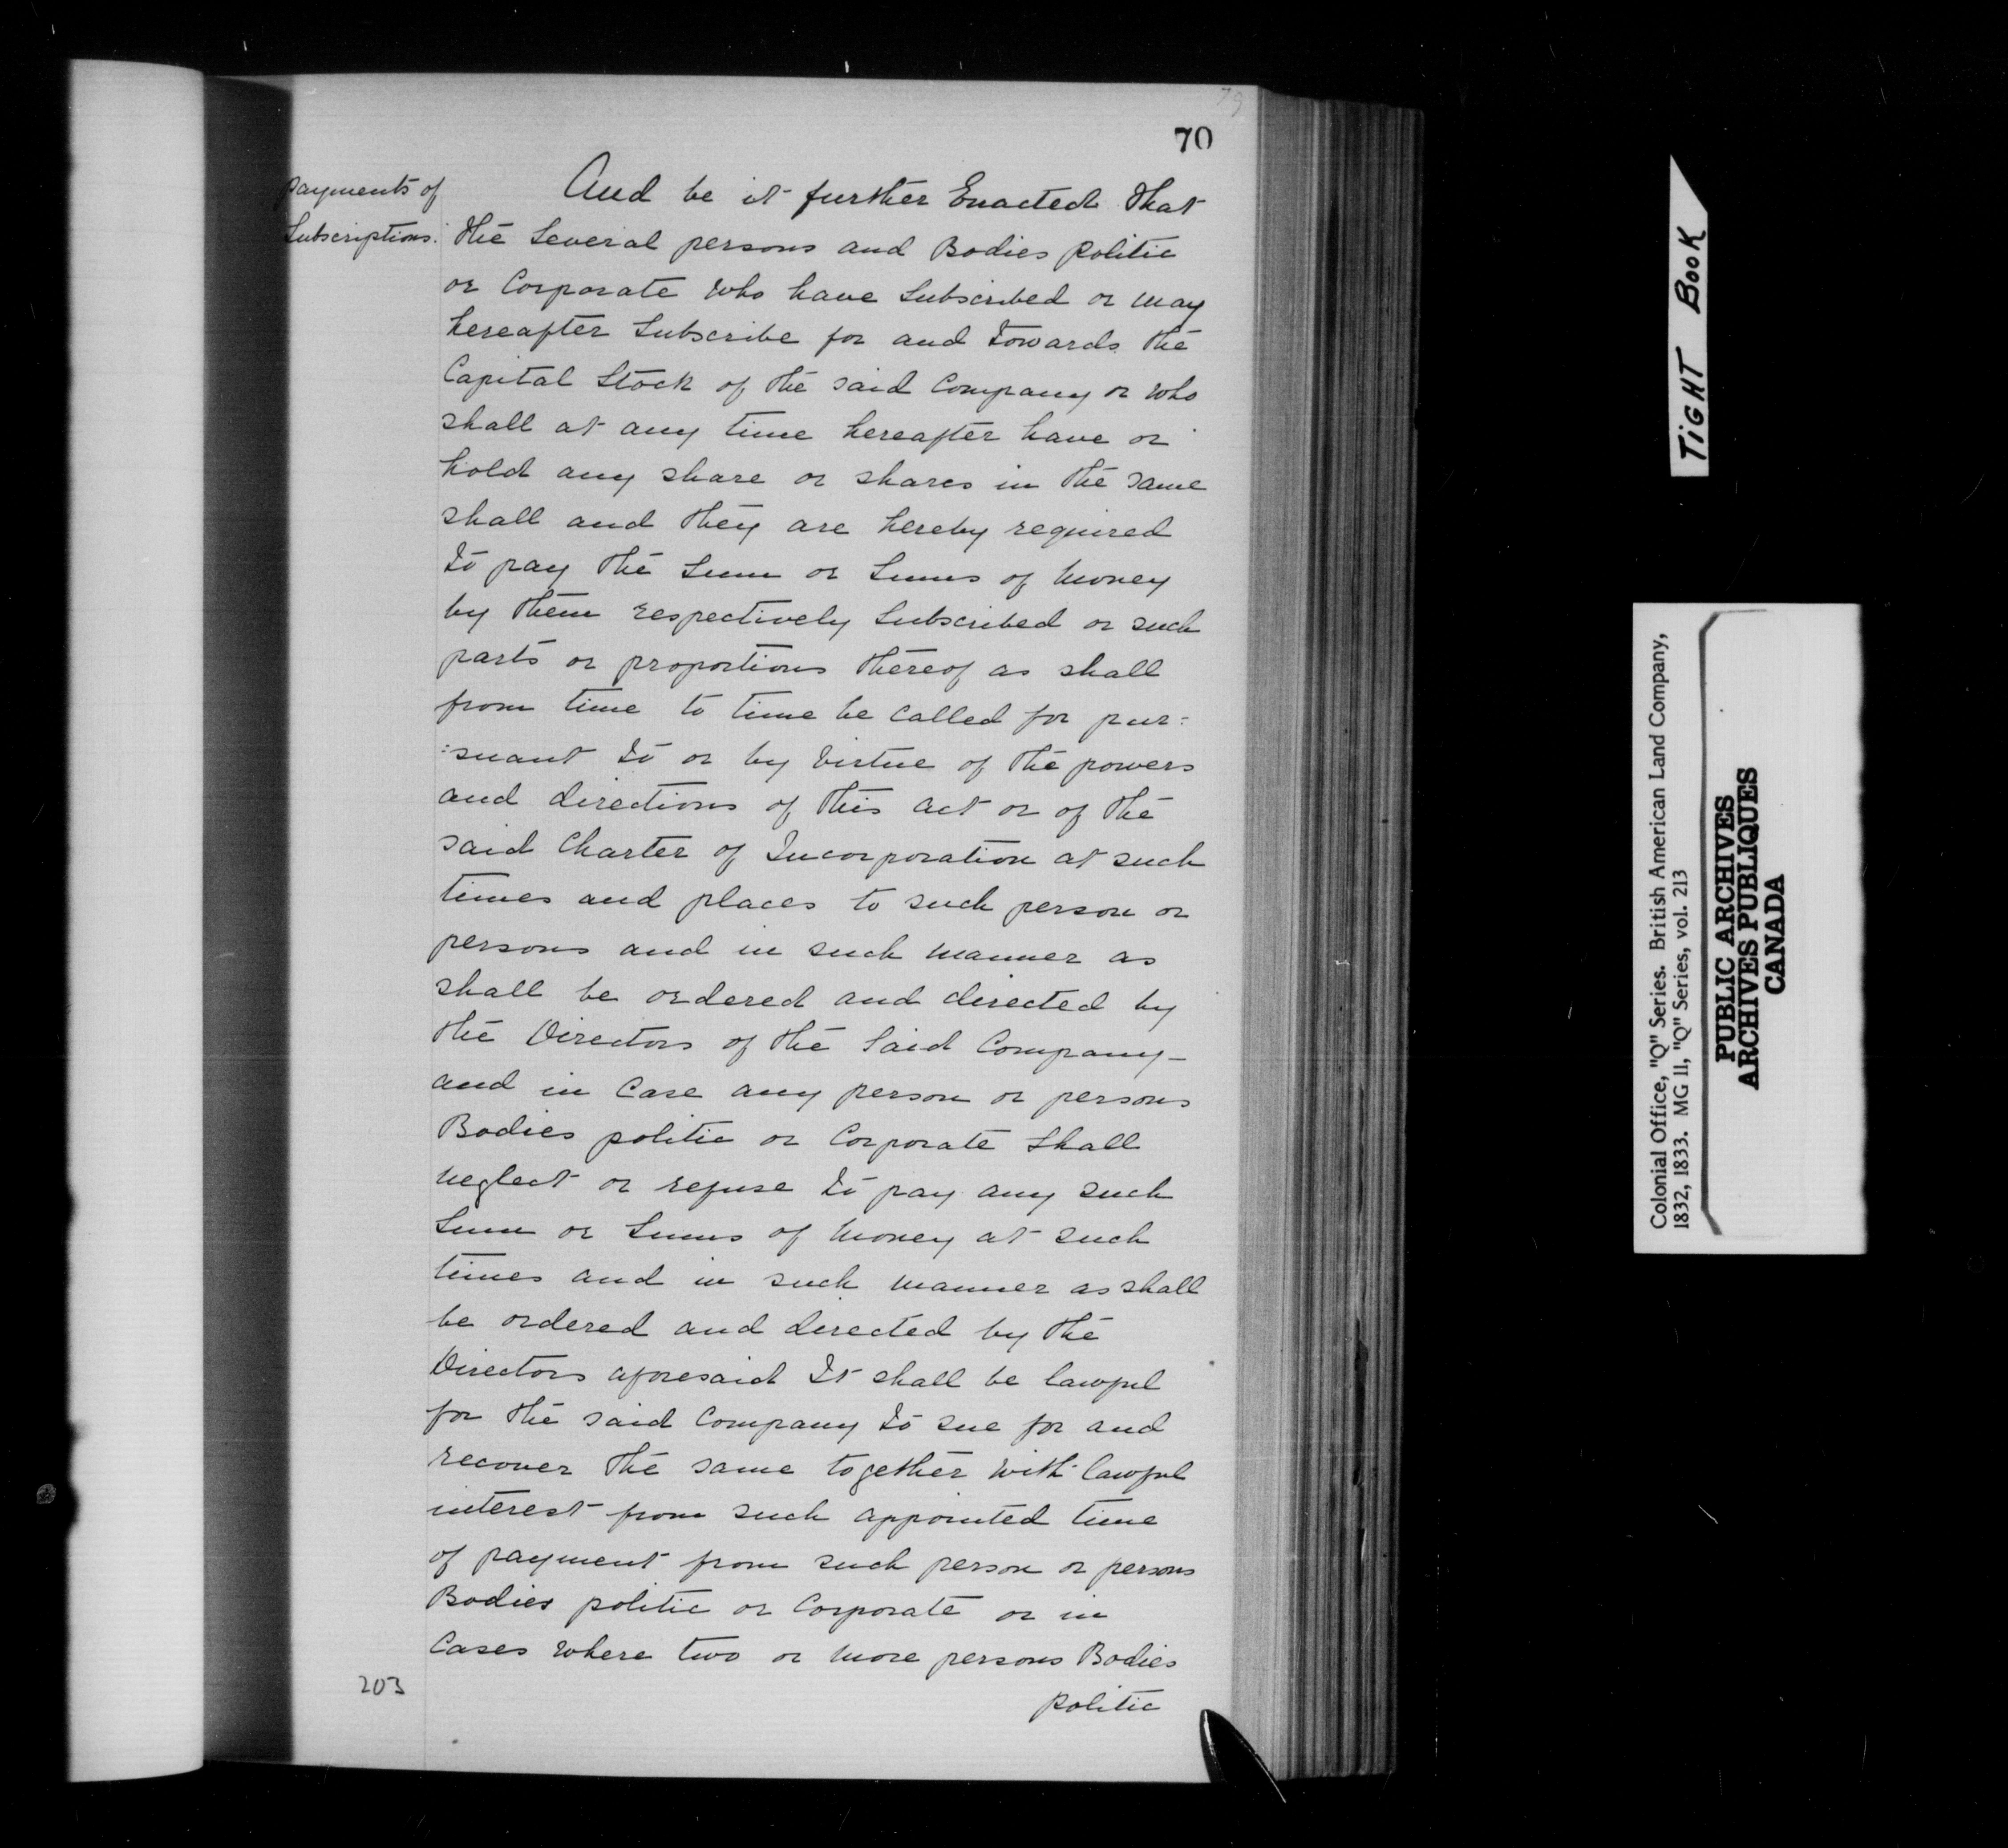 79
70
payments of
Subscriptions.
And be it further Enacted That
the Several persons and Bodies politic
or Corporate who have Subscribed or may
hereafter Subscribe for and Towards the
Capital Stock of the said Company or who
shall at any time hereafter have or
hold any share or shares in the same
shall and they are hereby required
To pay the Sum or Sums of Money
by them respectively Subscribed or such
parts or proportions thereof as shall
from time to time be called for pur:
:suant To or by Virtue of the powers
and directions of this act or of the
said Charter of Incorporation at such
times and places to such person or
persons and in such manner as
shall be ordered and directed by
the Directors of the Said Company—
and in Case any person or persons
Bodies politic or Corporate Shall
neglect or refuse To pay any such
Sum or Sums of Money at such
times and in such manner as shall
be ordered and directed by the
Directors aforesaid It shall be lawful
for the said Company To sue for and
recover the same together with lawful
interest from such appointed time
of payment from such person or persons
Bodies politic or Corporate or in
Cases where two or more persons Bodies
politic
203
TIGHT BOOK
Colonial Office, "Q" Series. British American Land Company,
1832, 1833. MG 11, "Q" Series, vol. 213
PUBLIC ARCHIVES
ARCHIVES PUBLIQUES
CANADA